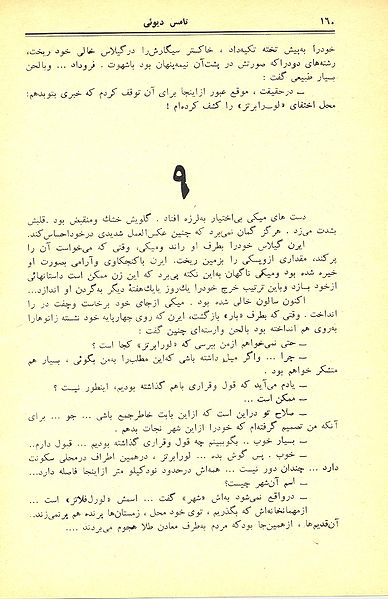 ۱۶۰ تامس دیوئی
خودرا به‌پیش تخته تکیه‌داد ، خاکستر سیگارش‌را درگیلاس خالی خود ریخت،
رشته‌های دودراکه صورتش در پشت‌آن نیمه‌پنهان بود باشهوت . فروداد ... وبالحن
بسیار طبیعی گفت :
ــ درحقیقت ، موقع عبور ازاینجا برای آن توقف کردم که خبری بتوبدهم:
محل اختفای «لورابرتز» را کشف کرده‌ام !
۹
دست های میکی بی‌اختیار به‌لرزه افتاد . گلویش خشك ومنقبض بود .قلبش
بشدت میزد . هرگز گمان نمی‌برد که چنین عکس‌العمل شدیدی درخوداحساس‌کند.
ایرن گیلاس خودرا بطرف او راند ومیکی، وقتی که می‌خواست آن را
پرکند، مقداری ازویسکی را بزمین ریخت. ایرن باکنجکاوی وآرامی بصورت او
خیره شده بود ومیکی ناگهان به‌این نکته پی‌برد که این زن ممکن است داستانهائی
ازخود بسازد وباین ترتیب خرج خودرا یك‌روز یایك‌هفتهٔ دیگر به‌گردن او اندازد...
اکنون سالون خالی شده بود . میکی ازجای خود برخاست وچفت در را
انداخت . وقتی که بطرف «بار» بازگشت، ایرن که روی چهارپایه خود نشسته زانوهارا
به‌روی هم انداخته بود بالحن وارسته‌ای چنین گفت :
ــ حتی نمی‌خواهم ازمن بپرسی که «لورابرتز» کجا است ؟
ــ چرا ... واگر میل‌داشته باشی که‌این مطلب‌را به‌من بگوئی ، بسیار هم
متشکر خواهم بود .
ــ یادم می‌آید که قول وقراری باهم گذاشته بودیم، اینطور نیست ؟
ــ ممکن است ...
ــ صلاح تو دراین است که ازاین بابت خاطرجمع باشی ... جو ... برای
آنکه من تصمیم گرفته‌ام که خودرا ازاین شهر نجات بدهم .
ــ بسیار خوب .. بگوببینم چه قول وقراری گذاشته بودیم ... قبول دارم..
ــ خوب . پس گوش بده ... لورابرتز ، درهمین اطراف درمحلی سکونت
دارد ... چندان دور نیست ... همه‌اش درحدود نودکیلو متر ازاینجا فاصله دارد...
ــ اسم آن‌شهر چیست؟
ــ درواقع نمی‌شود به‌اش «شهر» گفت ... اسمش «لورل‌فلاتز» است ...
ازمهمانخانه‌اش که بگذریم ، توی خود محل ، زمستان‌ها پرنده هم پرنمی‌زند..
آن‌قدیم‌ها ، ازهمین‌جا بودکه مردم به‌طرف معادن طلا هجوم می‌بردند ....